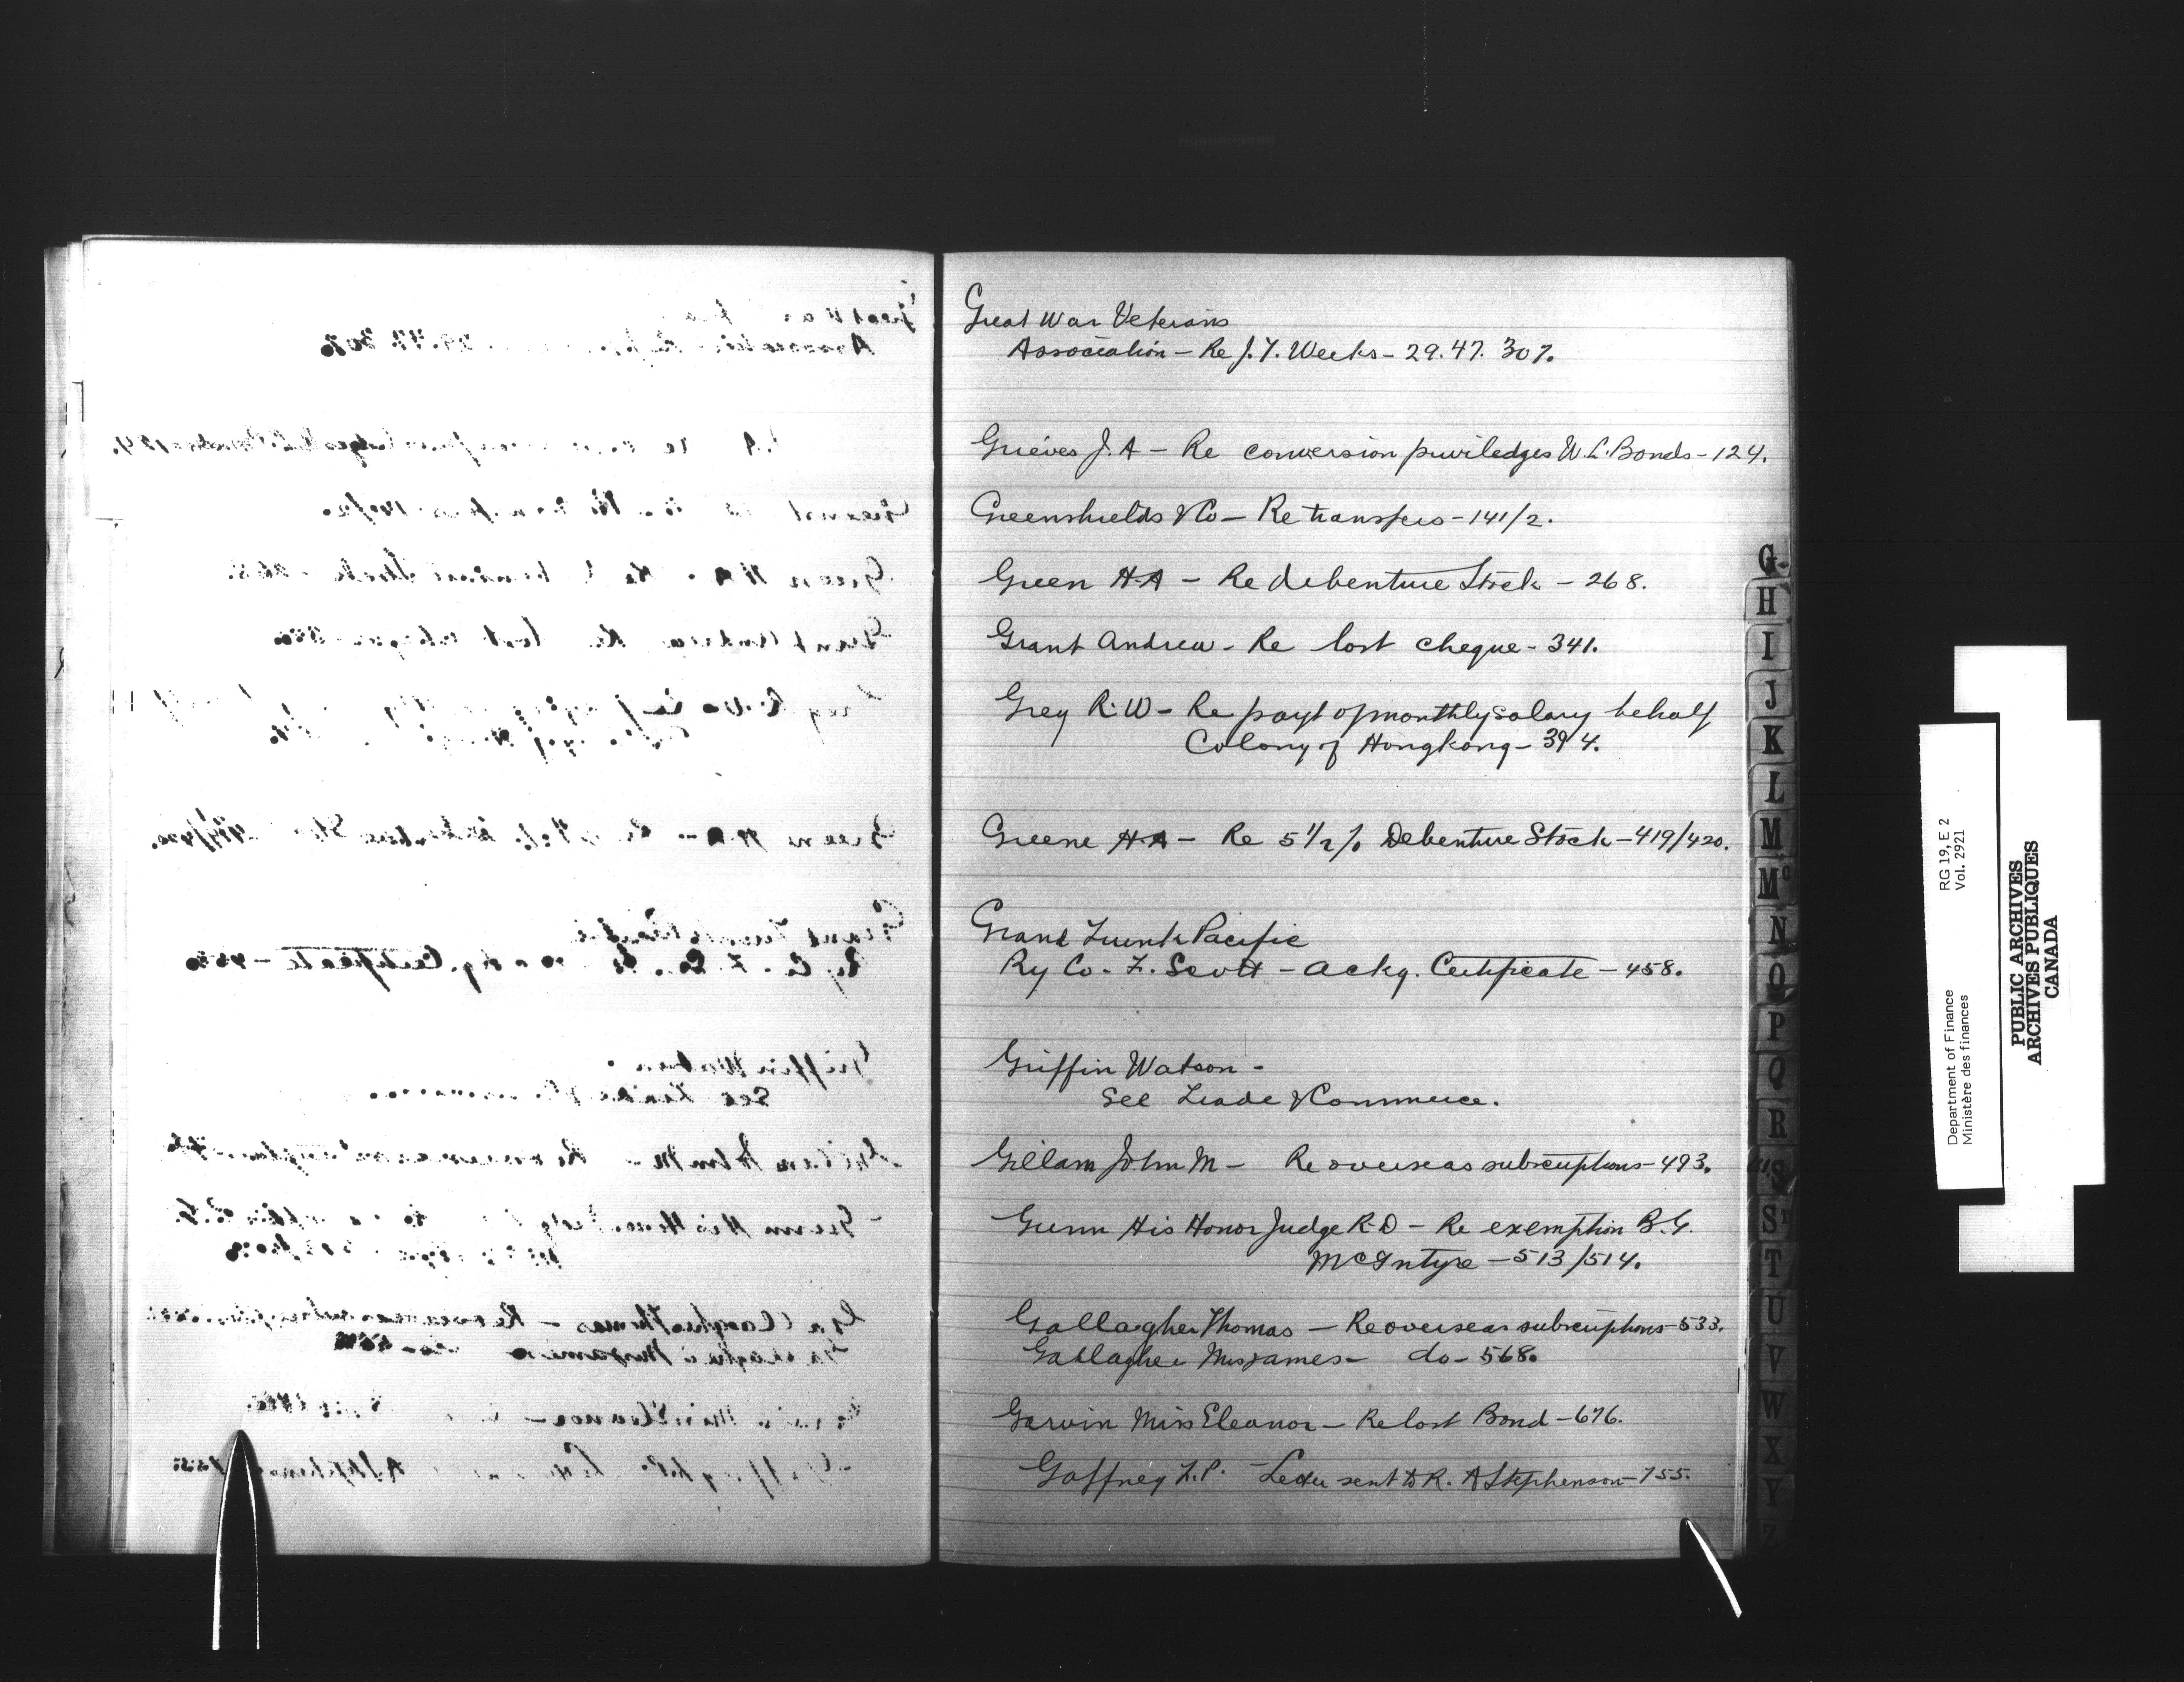 Great War Veterans
Association - Re J. Y. Weeks - 29. 47. 307.
Grieves J. A - Re conversion priviledges W. L. Bonds - 124.
Greenshields & Co - Re transfers - 141/2.
Green H. A - Re debenture Stock - 268.
Grant Andrew - Re lost cheque - 341.
Grey R. W - Re payt of monthly salary behalf
Colony of Hongkong - 394.
Greene H. A - Re 5 1/2 % Debenture Stock - 419/420.
Grand Trunk Pacific
Ry Co. F. Scott - ackg. Certificate - 458.
Griffin Watson -
See Trade & Commerce.
Gillam John M - Re overseas subscriptions - 493.
Gunn His Honor Judge R. D - Re exemption B. G.
McIntyre - 513/514.
Gallagher Thomas - Re overseas subscriptions - 533.
Gallagher Mrs James - do - 568.
Garvin Miss Eleanor - Re lost Bond - 676.
Gaffney L. P. - Letter sent to R. A Stephenson - 755.
G
H
I
J
K
L
M
Mc
N
O
P
Q
R
S
St
T
U
V
W
X
Y
Z
RG 19, E 2
Vol. 2921
Department of Finance
Ministère des finances
PUBLIC ARCHIVES
ARCHIVES PUBLIQUES
CANADA